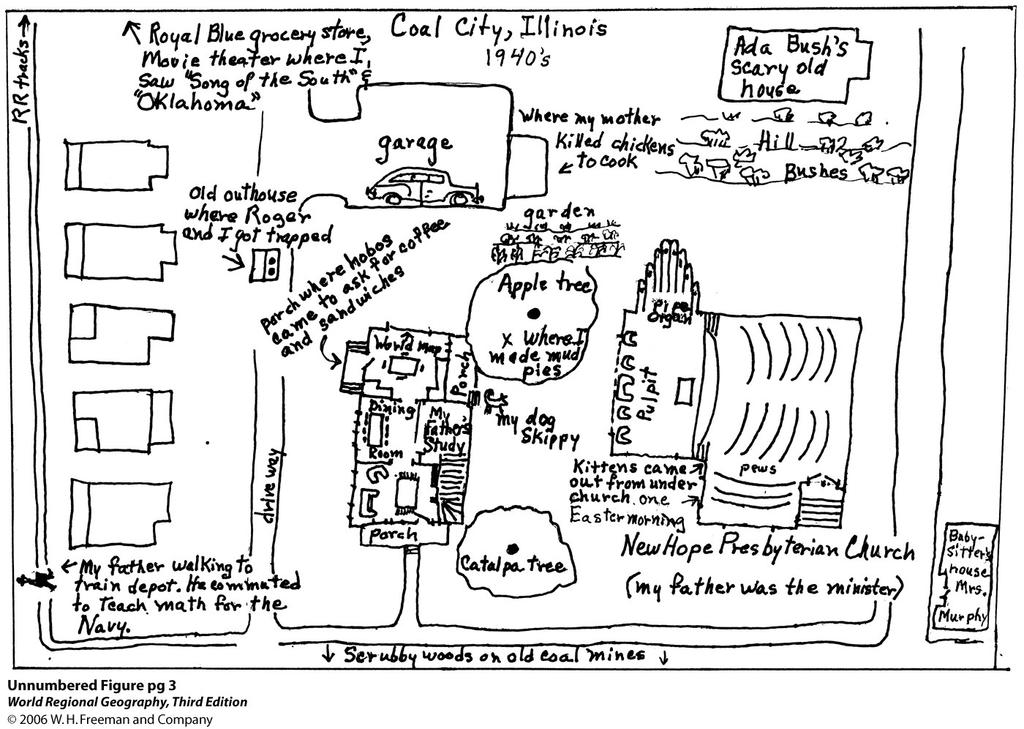 RR tracks →
Royal Blue grocery store,
Movie theater where I
Saw "Song of the South" &
"Oklahoma"
Coal City, Illinois
1940's
Ada Bush's
scary old
house
Where my mother
killed chickens
to cook
Hill
Bushes
garage
Old outhouse
where Roger
and I got trapped
Porch where hobos
came to ask for coffee
and sandwiches
garden
Apple tree
x Where I
made mud
pies
Pipe
Organ
Pulpit
World Map
Porch
Dining
Room
My
Father's
Study
my dog
Skippy
Porch
driveway
Kittens came
out from under
church one
Easter morning
pews
Catalpa Tree
New Hope Presbyterian Church
(my father was the minister)
Baby-
sitter's
house
Mrs.
Murphy
← My father walking to
train depot. He commuted
to Teach math for the
Navy.
↓ Scrubby woods on old coal mines ↓
Unnumbered Figure pg 3
World Regional Geography, Third Edition
© 2006 W. H. Freeman and Company